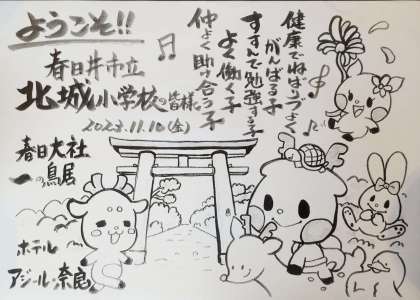 ようこそ!!
春日井市立
北城小学校の皆様
2023.11.10(金)
健康でねばりづよく
がんばる子
すすんで勉強する子
よく働く子
仲よく助け合う子
春日大社
一の鳥居
ホテル
アジール・奈良